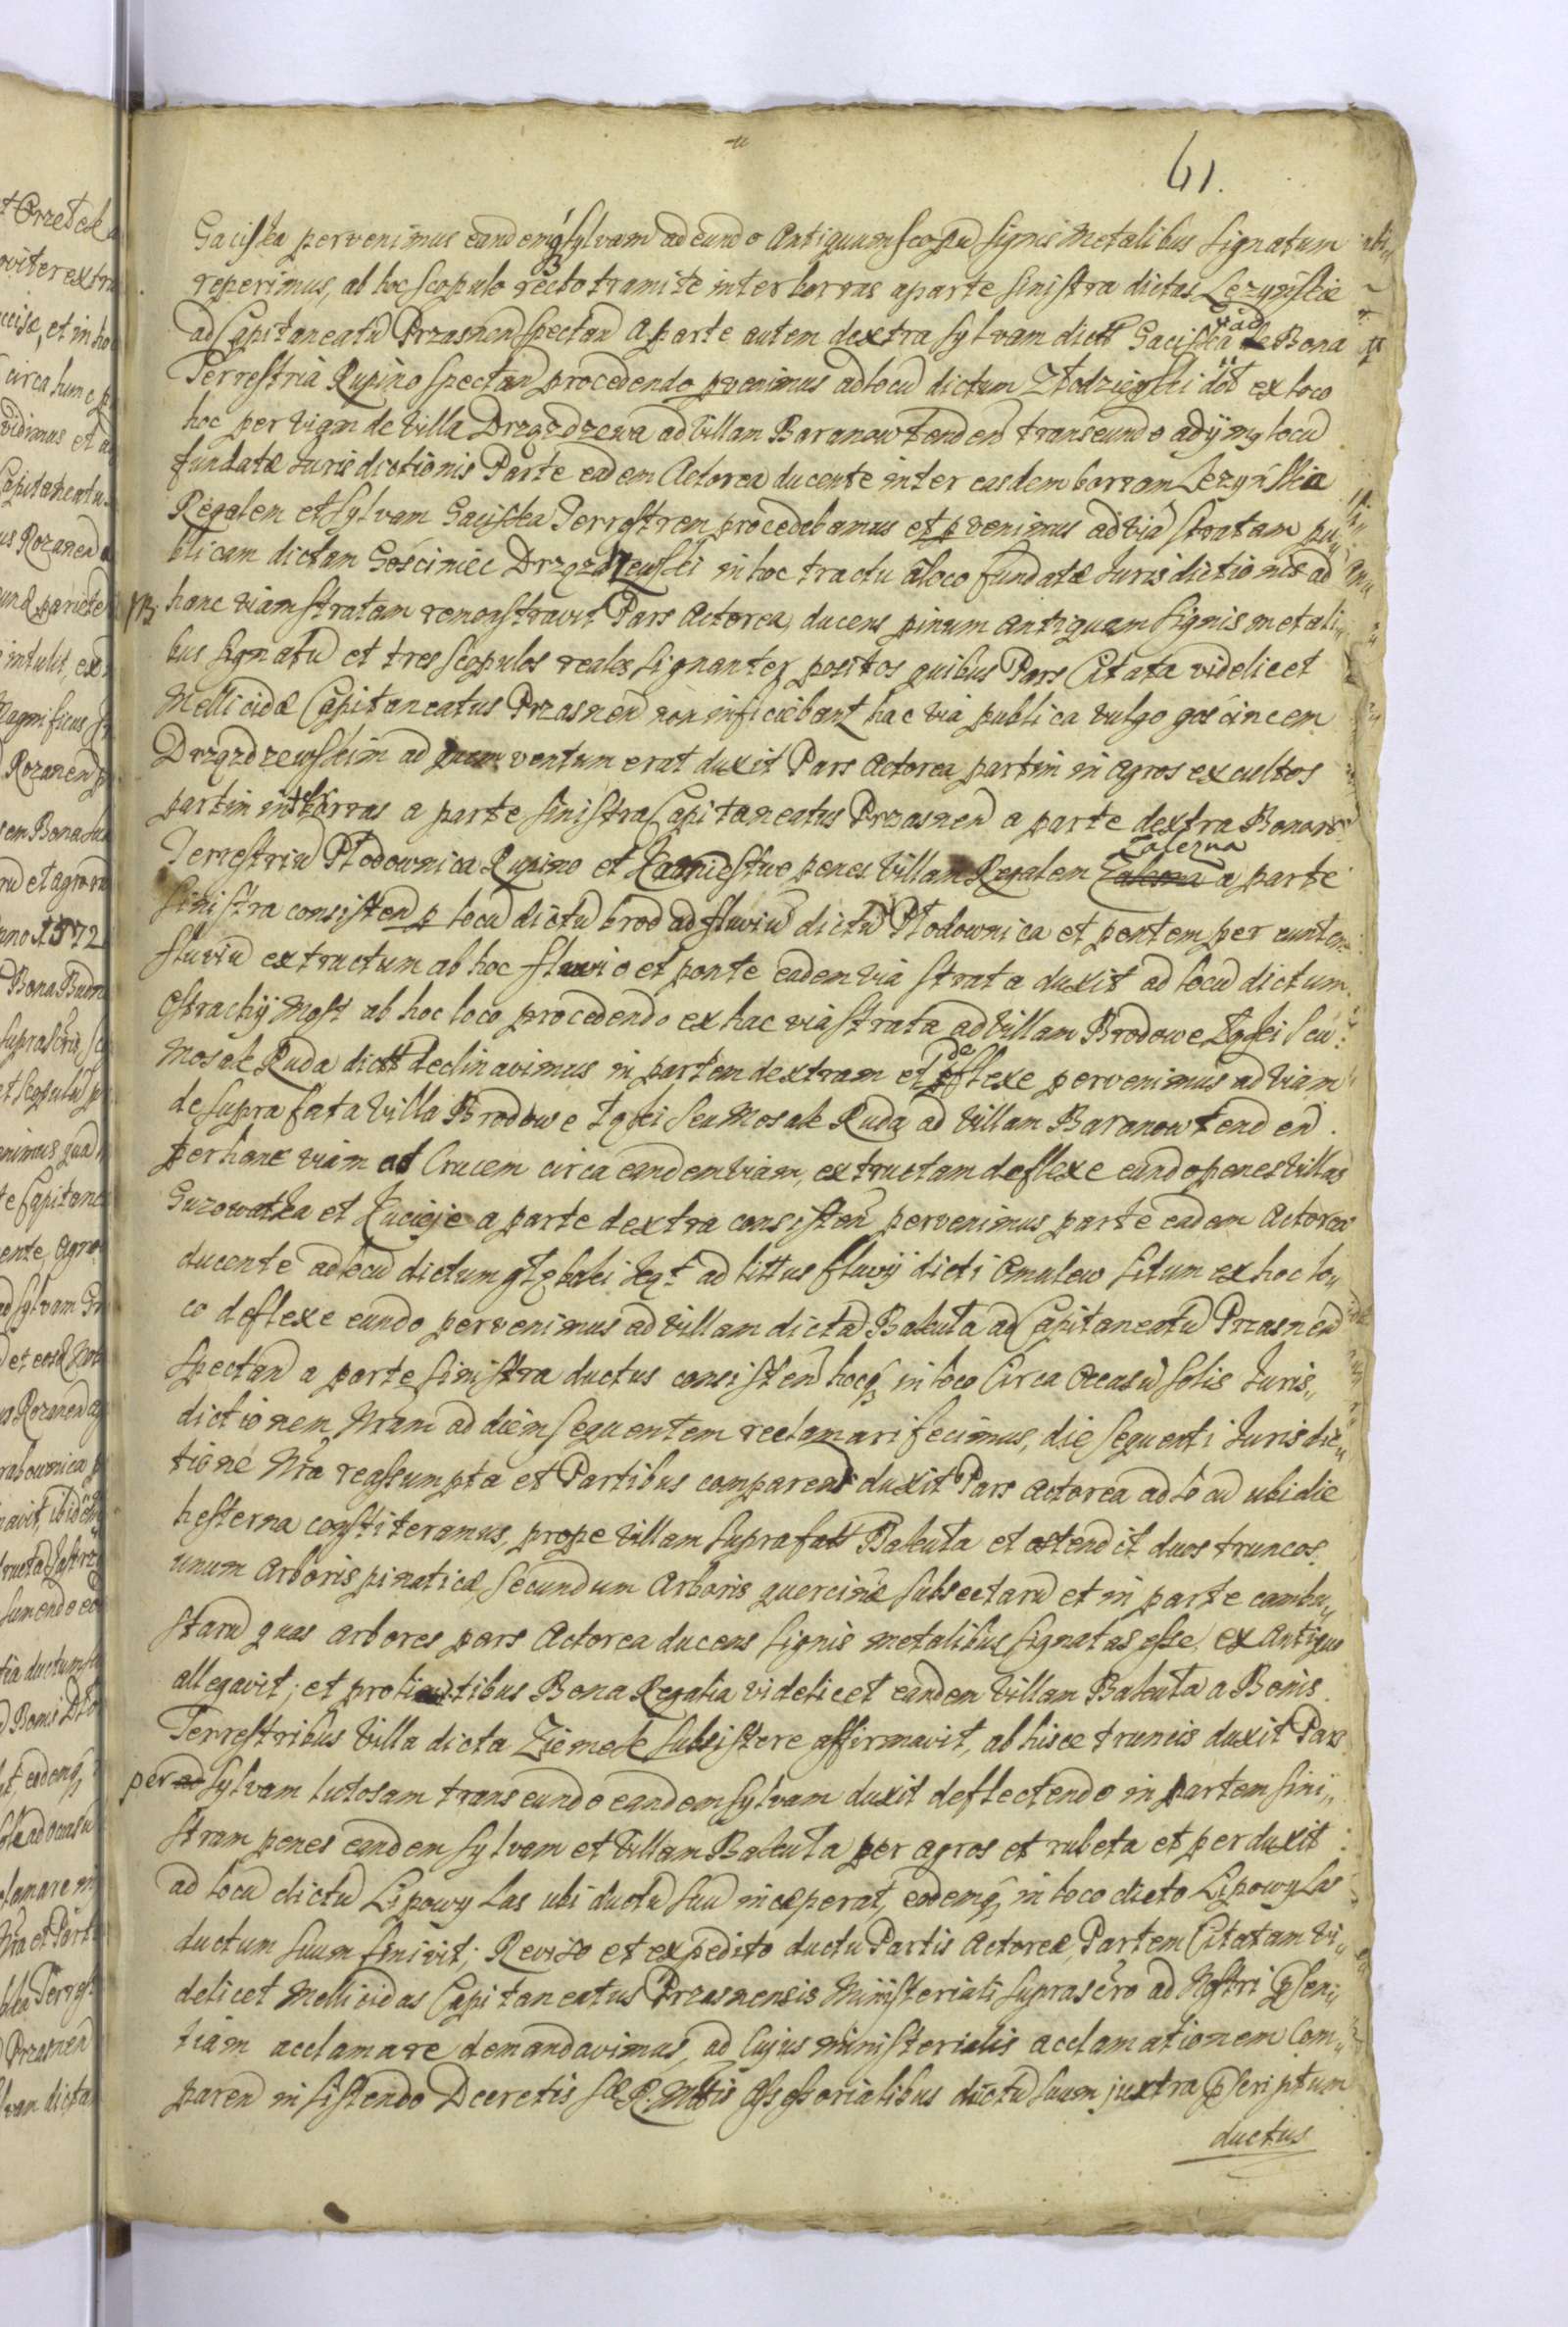 61.
Gaciska pervenimus eandemq sylvam adeundo Antiquum scopu signis Metalibus signatum
reperimus, ab hoc scopulo recto tramite inter borras a parte sinistra dictas Lezynskie
ad Capitaneatu Przasnen spectan a parte autem dextra sylvam dict Gaciska ad Bona
Terrestria Rupino spectan procedendo pvenimus ad locu dictum Złodzieyski ex loco
hoc per viam de Villa Drzązdzewa ad Villam Baranow tenden transeundo ad locu
fundatæ Jurisdictionis Parte eadem Actorea ducente inter easdem borram Lezyńskia
Regalem et sylvam Gaciska Terrestrem procedebamus et pvenimus ad via stratam pu„
blicam dictam Gościniec Drzązdzewski in hoc tractu a loco fundatæ Jurisdictionis ad
hanc viam stratam remonstravit Pars Actorea, ducens pinum antiquam signis metali„
bus signatu et tres scopulos reales signanter positos quibus Pars Citata videlicet
Mellicidæ Capitaneatus Przasnen non inficiebant hac via publica vulgo gościncem
Drzązdzewskim ad quem ventum erat duxit Pars Actorea partim in agros excultos
partim inter borras a parte sinistra Capitaneatus Przasnen a parte dextra Bonor
Terrestriu Płodownica Rupino et penes Villam Regalem Zalezna a parte
sinistra consisten p locu dictu brod ad fluviu dictu Płodownica et pontem per eunten
fluviu extructum ab hoc fluvio et ponte eadem via strata duxit ad locu dictum
Ostrachÿ Most ab hoc loco procedendo ex hac via strata ad Villam Brodowe Łąki seu
Mosak Ruda dict declinavimus in partem dextram et deflexe pervenimus ad viam
de supra fata Villa Brodowe Łąki seu Mosak Ruda ad Villam Baranow tenden.
per hanc viam ad Crucem circa eandem viam, extructam deflexe eundo penes Villas
Guzowatka et Kucieje a parte dextra consisten pervenimus parte eadem Actorea
ducente ad locu dictum Głęboki ad littus fluvij dicti Omulew situm ex hoc lo„
co deflexe eundo pervenimus ad villam dicta Bakuta ad Capitaneatu Przasnen
spectan a parte sinistra ductus consisten hocq in loco Circa Occasu solis Juris„
dictionem Nram ad diem sequentem reclamari fecimus, die sequenti Jurisdic„
tione Nra reassumpta et Partibus comparen duxit Pars Actorea ad locu ubi die
hesterna constiteramus, prope Villam suprafat Bakuta et ostendit duos truncos
unum Arboris pinaticæ, secundum Arboris quercinæ subsectaru et in parte cambu„
staru quas arbores pars Actorea ducens signis metalibus signatas esse ex Antiquo
allegavit; et Bona Regalia videlicet eandem Villam Bakuta a Bonis
Terrestribus Villa dicta Ziemek subsistere affirmavit, ab hisce truncis duxit Pars
per sylvam lutosam transeundo eandem sylvam duxit deflectendo in partem sini„
stram penes eandem sylvam et Villam Bakuta per agros et rubeta et perduxit
ad locu dictu Lipowy Las ubi ductu suu inceperat, eodemq in loco dicto Lipowy Las
ductum suum finivit; Reviso et expedito ductu Partis Actoreæ, Partem Citatam vi„
delicet Mellicidas Capitaneatus Przasnensis Ministeriali suprascro ad Nostri pseni„
tiam acclamare demandavimus, ad Cujus ministerialis acclamationem Com„
paren insistendo Decretis Sæ R. Mttis Assessorialibus ductu suum juxtra pscriptum
ductus